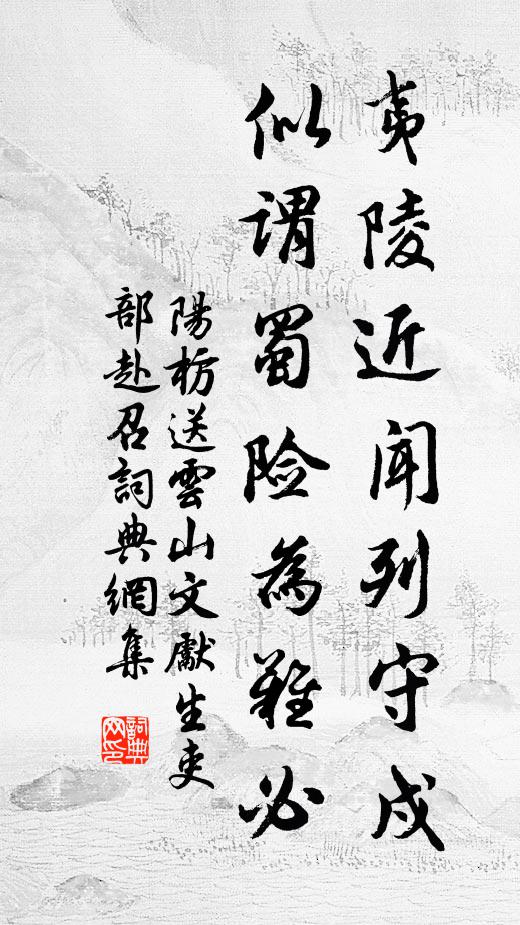 夷陵近闻列守戍
似谓蜀险為難必
陽枋送雲山文獻生吏
部赴召詞典網集
詞典网印